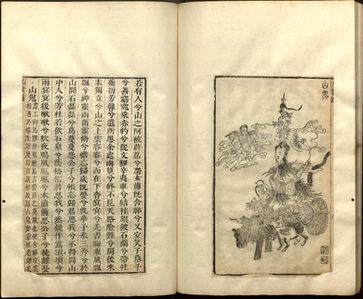 山鬼
若有人兮山之阿被薜荔兮帶女蘿旣含睇兮又宜笑子慕予
兮善窈窕乘赤豹兮從文貍辛夷車兮結桂旗被石蘭兮帶杜
衡折芳馨兮遺所思余處幽篁兮終不見天路險難兮獨後來
表獨立兮山之上雲容容兮而在下杳冥冥兮羌晝晦東風飄
飄兮神靈雨留靈脩兮憺忘歸歲旣晏兮孰華予采三秀兮於
山間石磊磊兮葛蔓蔓怨公子兮悵忘歸君思我兮不得閒山
中人兮芳杜若飲石泉兮蔭松柏君思我兮然疑作靁塡塡兮
雨冥冥猨啾啾兮又夜鳴風颯颯兮木蕭蕭思公子兮徒離憂
山鬼